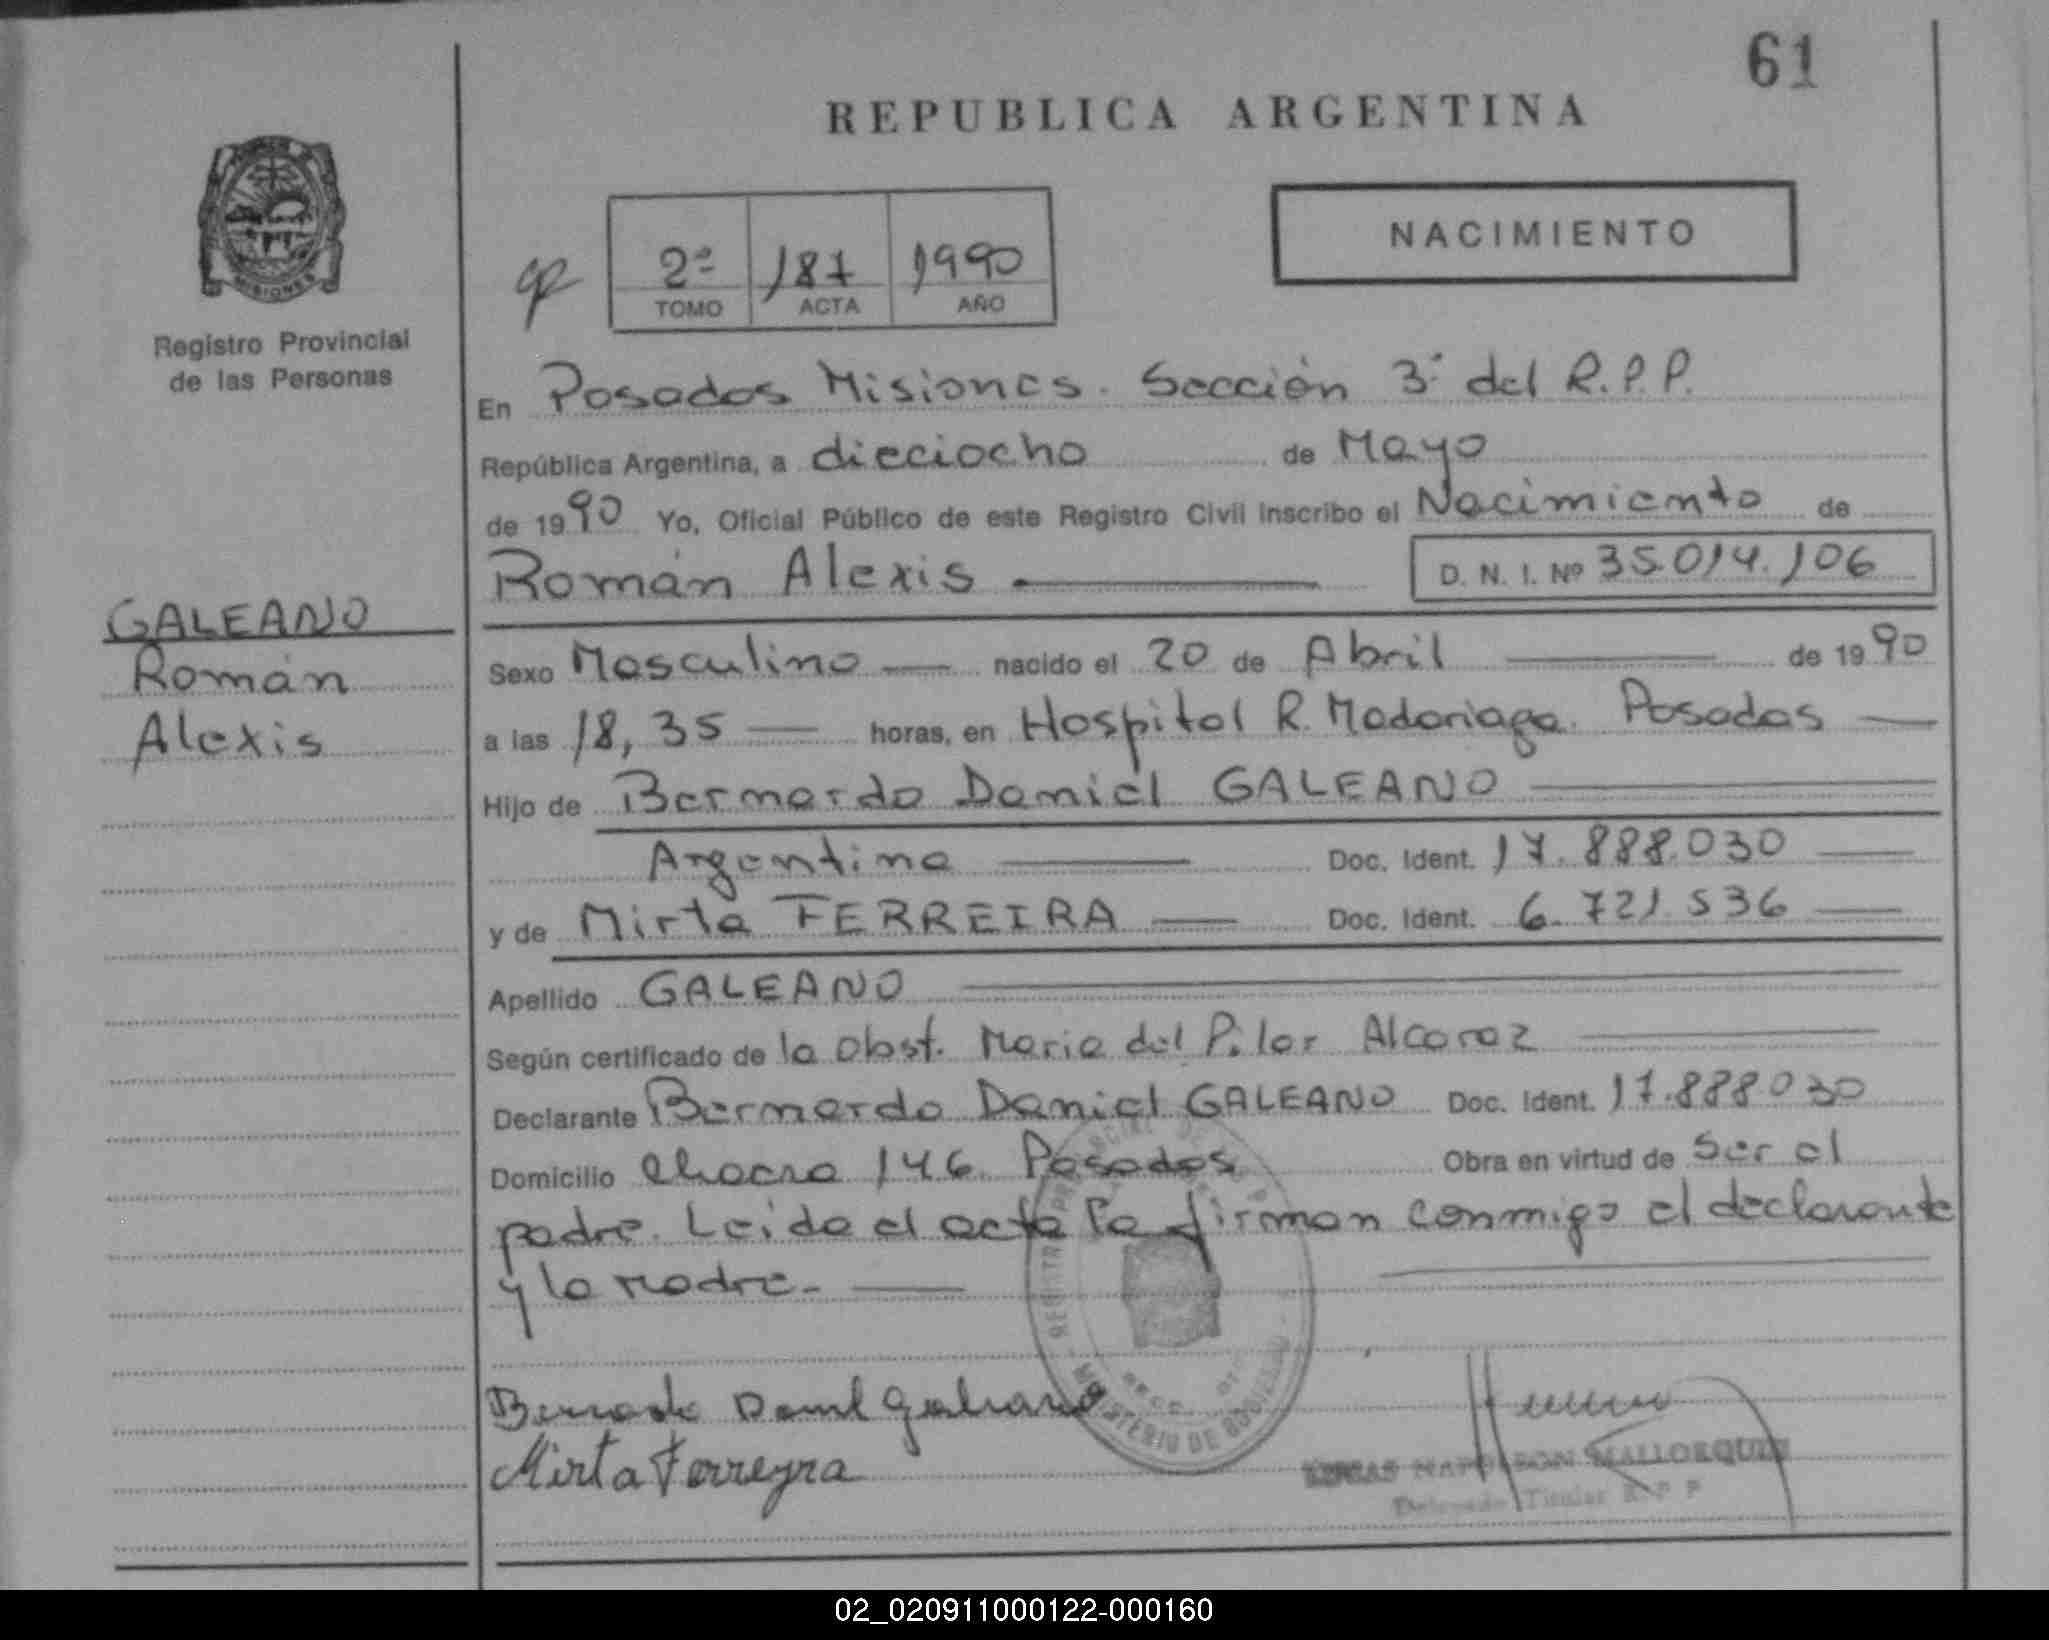 61
REPUBLICA ARGENTINA
NACIMIENTO
2º 187 1990
TOMO ACTA AÑO
MISIONES
Registro Provincial
de las Personas
GALEANO
Román
Alexis
En Posadas Misiones. Sección 3ª del R.P.P.
República Argentina, a dieciocho de Mayo
de 1990 Yo, Oficial Público de este Registro Civil inscribo el Nacimiento de
Román Alexis D. N. I. Nº 35.014.106
Sexo Masculino nacido el 20 de Abril de 1990
a las 18,35 horas, en Hospital R. Madariaga. Posadas
Hijo de Bernardo Daniel GALEANO
Argentino Doc. Ident. 17.888.030
y de Mirta FERREIRA Doc. Ident. 6.721.536
Apellido GALEANO
Según certificado de la obst. Maria del Pilar Alcaraz
Declarante Bernardo Daniel GALEANO Doc. Ident. 17.888.030
Domicilio Chacra 146 Posadas Obra en virtud de Ser el
padre. Leida el acta la firman conmigo el declarante
y la madre.-
Bernardo Daniel Galeano
Mirta Ferreyra
NAPOLEON MALLORQUIN
Delegado Titular R. P. P.
MINISTERIO DE GOBIERNO
02_020911000122-000160